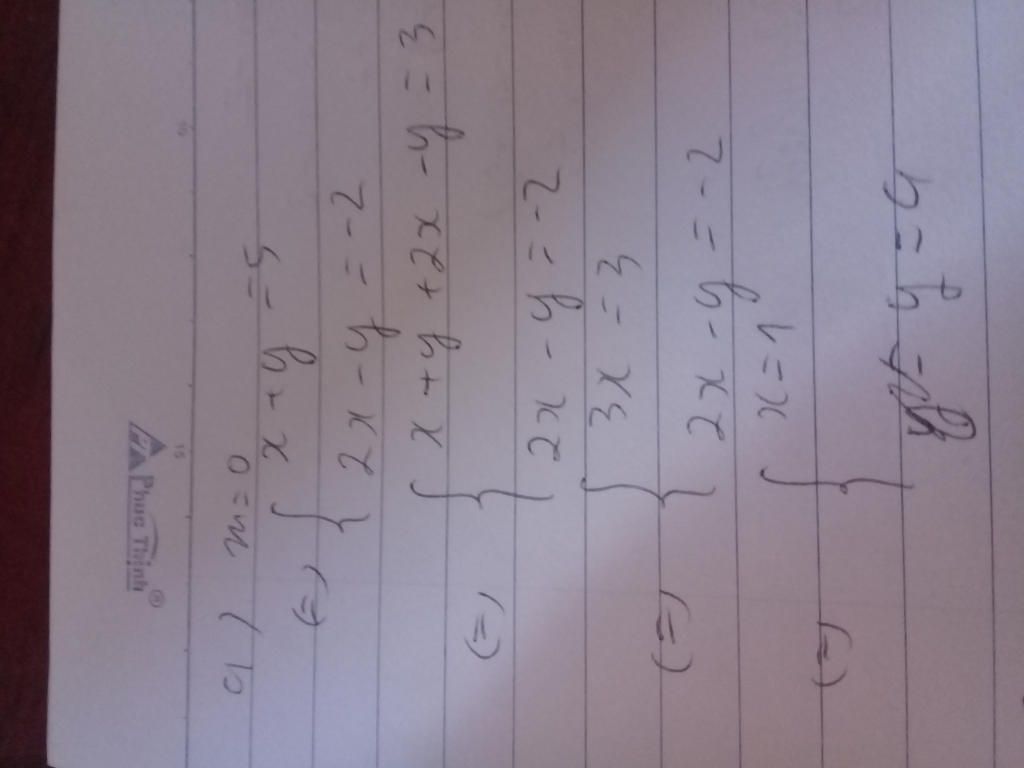 Phuc Thinh®
a) m=0
x+y=5
(=) {
2x-y=-2
x+y+2x-y=3
(=) {
2x-y=-2
3x=3
(=) {
2x-y=-2
x=1
(=) {
y=4